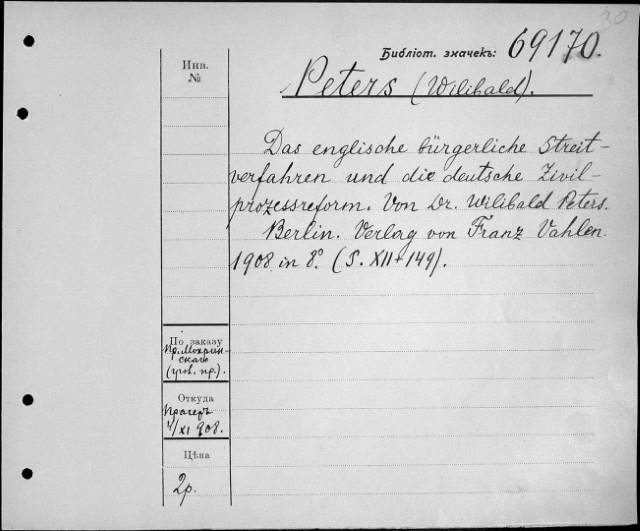 30
Библіот. значекъ: 69170.
Инв.
№
Peters (Wilibald).
Das englische bürgerliche Streit-
verfahren und die deutsche Zivil-
prozessreform. Von Dr. Wilibald Peters.
Berlin. Verlag von Franz Vahlen
1908 in 8° (S. XII+149).
По заказу
скаго
Откуда
Прагеръ
XI 908.
Цѣна
2р.